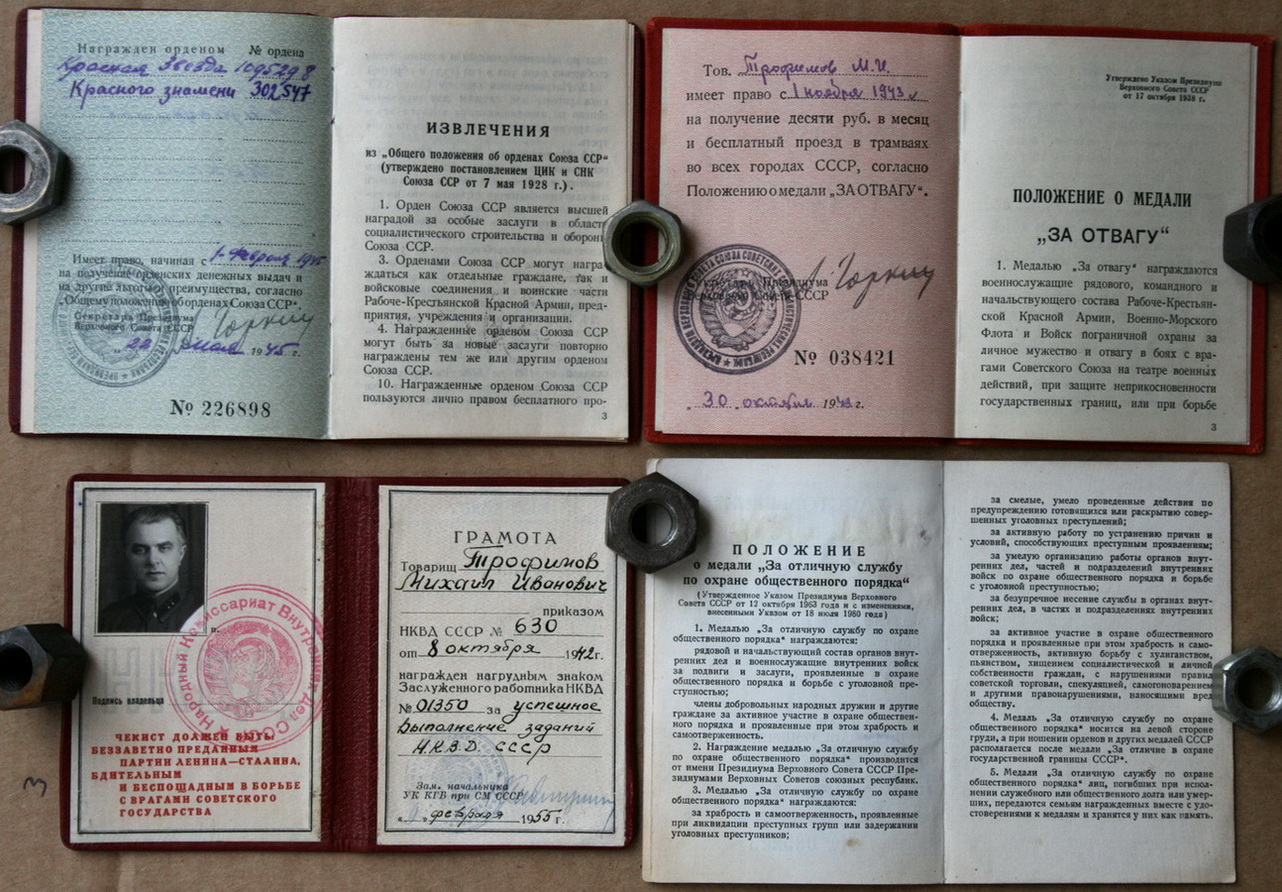 Награжден орденом № ордена
Красная Звезда 1095298
Красного знамени 302547
Имеет право, начиная с 1 февраля 1945
на получение орденских денежных выдач и
на другие льготы и преимущества, согласно
„Общему положению об орденах Союза ССР“.
Секретарь Президиума
Верховного Совета СССР
„22 мая 1945 г.
№ 226898
ИЗВЛЕЧЕНИЯ
из „Общего положения об орденах Союза ССР“
(утверждено постановлением ЦИК и СНК
Союза ССР от 7 мая 1928 г.).
1. Орден Союза ССР является высшей
наградой за особые заслуги в области
социалистического строительства и обороны
Союза ССР.
3. Орденами Союза ССР могут награ-
ждаться как отдельные граждане, так и
войсковые соединения и воинские части
Рабоче-Крестьянской Красной Армии, пред-
приятия, учреждения и организации.
4. Награжденные орденом Союза ССР
могут быть за новые заслуги повторно
награждены тем же или другим орденом
Союза ССР.
10. Награжденные орденом Союза ССР
пользуются лично правом бесплатного про-
3
Тов. Трофимов М.И.
имеет право с 1 ноября 1943 г
на получение десяти руб. в месяц
и бесплатный проезд в трамваях
во всех городах СССР, согласно
Положению о медали „ЗА ОТВАГУ“.
Секретарь Президиума
Верховного Совета СССР
А. Горкин
№ 038421
„30 октября 1943 г.
Утверждено Указом Президиума
Верховного Совета СССР
от 17 октября 1938 г.
ПОЛОЖЕНИЕ О МЕДАЛИ
„ЗА ОТВАГУ“
1. Медалью „За отвагу“ награждаются
военнослужащие рядового, командного и
начальствующего состава Рабоче-Крестьян-
ской Красной Армии, Военно-Морского
Флота и Войск пограничной охраны за
личное мужество и отвагу в боях с вра-
гами Советского Союза на театре военных
действий, при защите неприкосновенности
государственных границ, или при борьбе
3
Подпись владельца
Народный Комиссариат Внутренних Дел СССР
ЧЕКИСТ ДОЛЖЕН БЫТЬ
БЕЗЗАВЕТНО ПРЕДАННЫМ
ПАРТИИ ЛЕНИНА—СТАЛИНА,
БДИТЕЛЬНЫМ
И БЕСПОЩАДНЫМ В БОРЬБЕ
С ВРАГАМИ СОВЕТСКОГО
ГОСУДАРСТВА
ГРАМОТА
Товарищ Трофимов
Михаил Иванович
приказом
НКВД СССР № 630
от 8 октября 1942 г.
награжден нагрудным знаком
Заслуженного работника НКВД
№ 01350 за успешное
выполнение заданий
НКВД СССР
Зам. начальника
УК КГБ при СМ СССР
февраля 1955 г.
ПОЛОЖЕНИЕ
о медали „За отличную службу
по охране общественного порядка“
(Утвержденное Указом Президиума Верховного
Совета СССР от 12 октября 1963 года и с изменениями,
внесенными Указом от 18 июля 1980 года)
1. Медалью „За отличную службу по охране
общественного порядка“ награждаются:
рядовой и начальствующий состав органов внут-
ренних дел и военнослужащие внутренних войск
за подвиги и заслуги, проявленные в охране
общественного порядка и борьбе с уголовной пре-
ступностью;
члены добровольных народных дружин и другие
граждане за активное участие в охране обществен-
ного порядка и проявленные при этом храбрость и
самоотверженность.
2. Награждение медалью „За отличную службу
по охране общественного порядка“ производится
от имени Президиума Верховного Совета СССР Пре-
зидиумами Верховных Советов союзных республик.
3. Медалью „За отличную службу по охране
общественного порядка“ награждаются:
за храбрость и самоотверженность, проявленные
при ликвидации преступных групп или задержании
уголовных преступников;
за смелые, умело проведенные действия по
предупреждению готовящихся или раскрытию совер-
шенных уголовных преступлений;
за активную работу по устранению причин и
условий, способствующих преступным проявлениям;
за умелую организацию работы органов внут-
ренних дел, частей и подразделений внутренних
войск по охране общественного порядка и борьбе
с уголовной преступностью;
за безупречное несение службы в органах внут-
ренних дел, в частях и подразделениях внутренних
войск;
за активное участие в охране общественного
порядка и проявленные при этом храбрость и само-
отверженность, активную борьбу с хулиганством,
пьянством, хищением социалистической и личной
собственности граждан, с нарушениями правил
советской торговли, спекуляцией, самогоноварением
и другими правонарушениями, наносящими вред
обществу.
4. Медаль „За отличную службу по охране
общественного порядка“ носится на левой стороне
груди, а при ношении орденов и других медалей СССР
располагается после медали „За отличие в охране
государственной границы СССР“.
5. Медали „За отличную службу по охране
общественного порядка“ лиц, погибших при испол-
нении служебного или общественного долга или умер-
ших, передаются семьям награжденных вместе с удо-
стоверениями к медалям и хранятся у них как память.